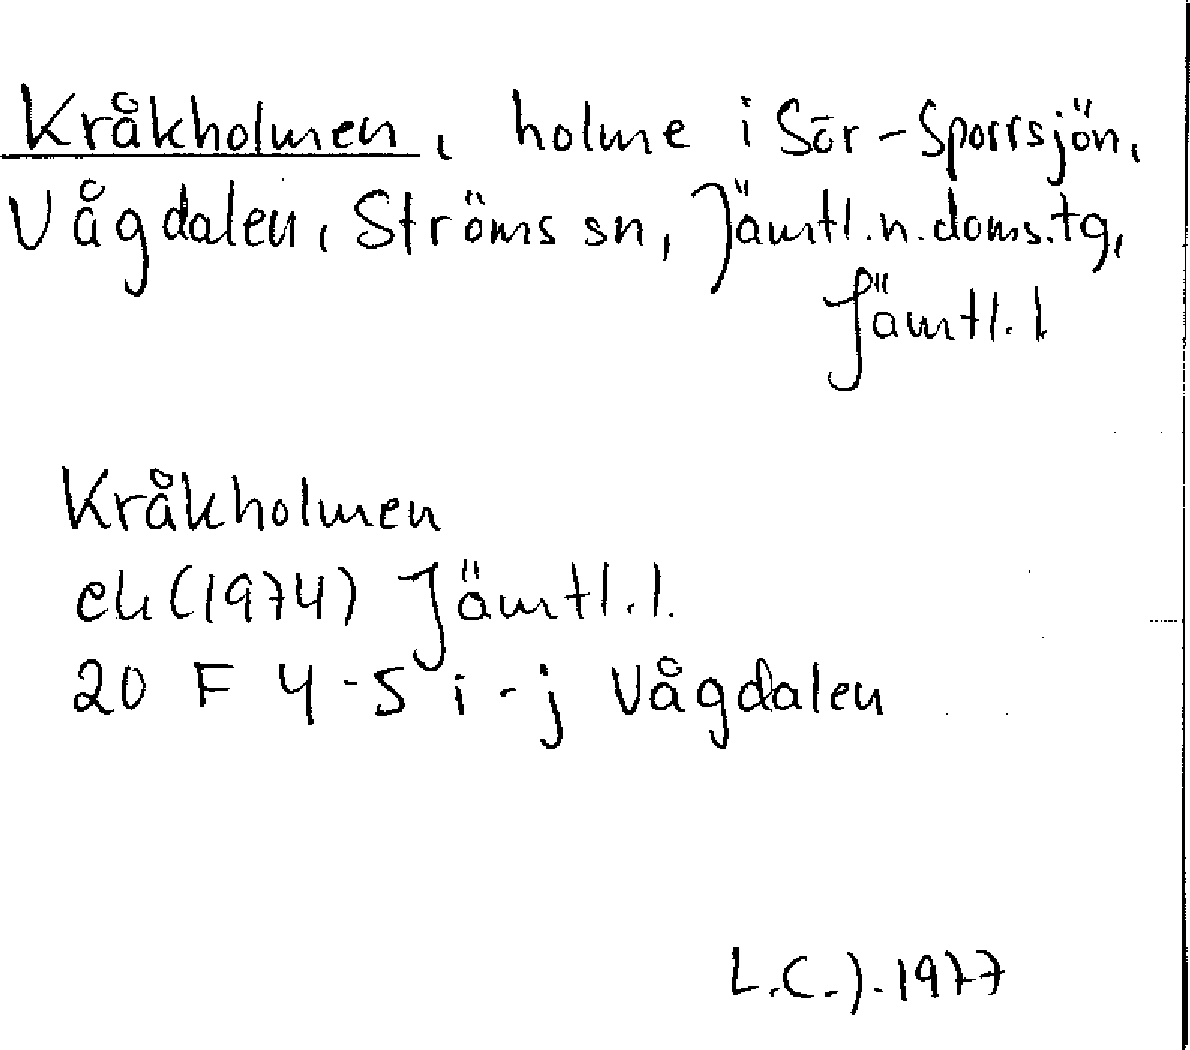 Kråkholmen, holme i Sör-Sporrsjön,
Vågdalen, Ströms sn, Jämtl.n.doms.tg,
Jämtl.l
Kråkholmen
ek (1974) Jämtl.l.
20 F 4-5 i-j Vågdalen
L.C.J.1977